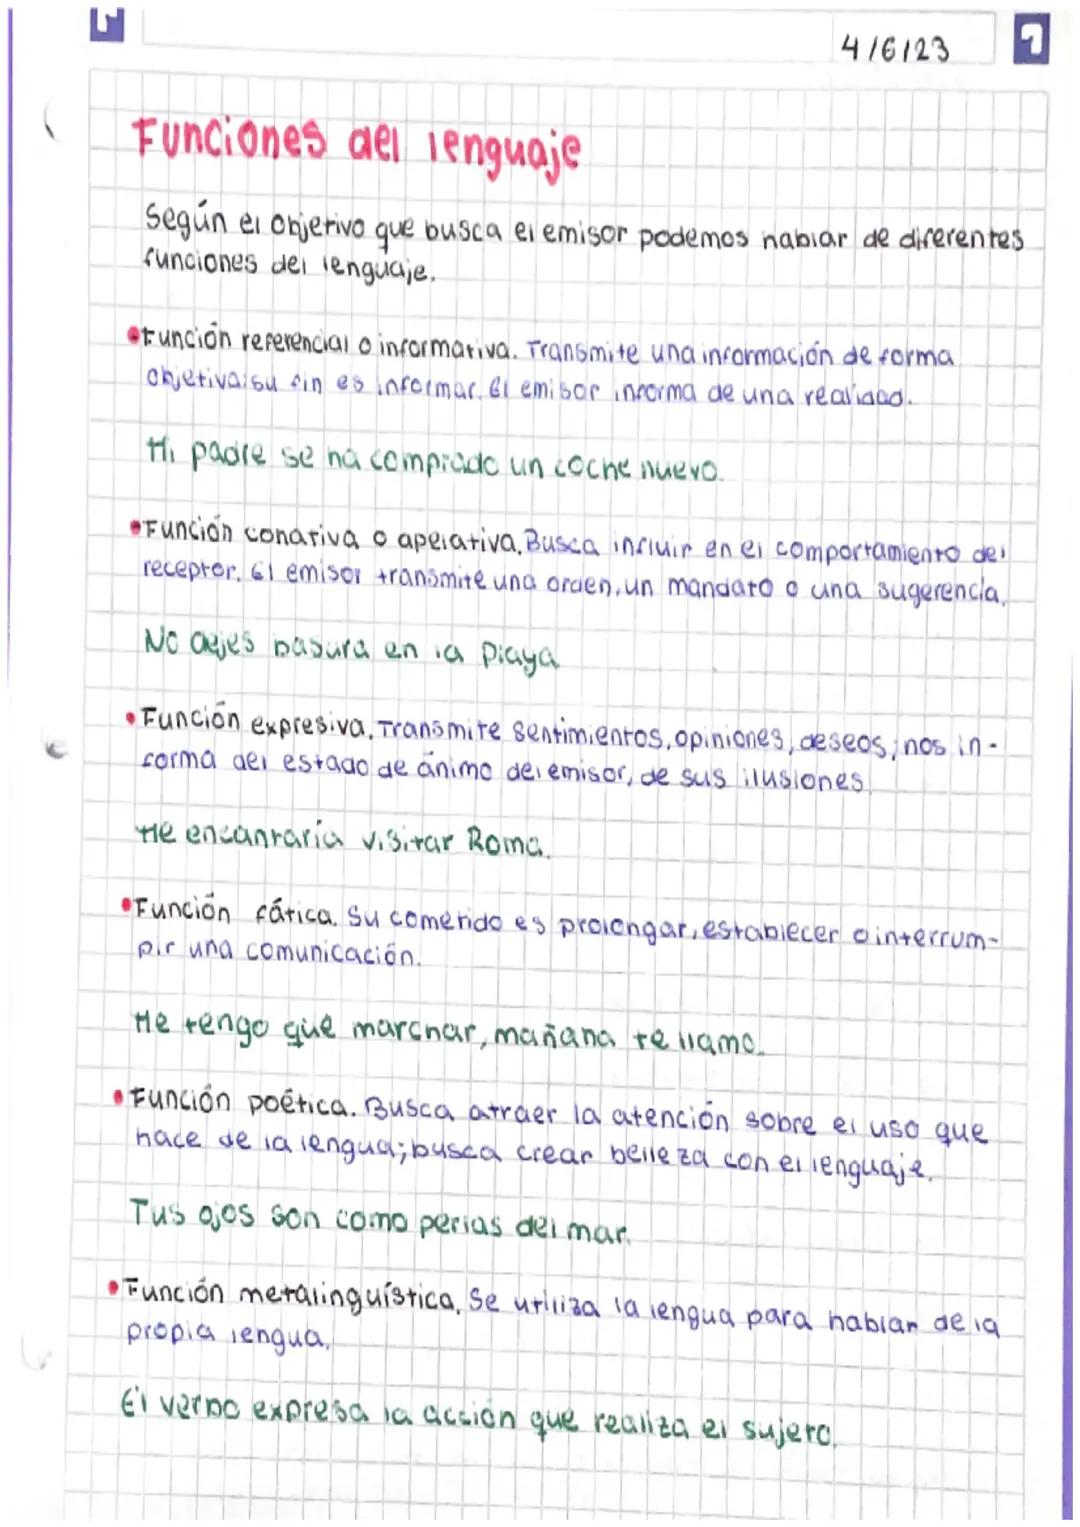 4/6/23
Funciones del lenguaje
Según el objetivo que busca el emisor podemos hablar de diferentes
funciones del lenguaje.
•Función referencial o informativa. Transmite una información de forma
objetiva; su fin es informar. El emisor informa de una realidad.
Mi padre se ha comprado un coche nuevo.
•Función conativa o apelativa. Busca influir en el comportamiento del
receptor. El emisor transmite una orden, un mandato o una sugerencia.
No dejes basura en la playa
•Función expresiva. Transmite sentimientos, opiniones, deseos; nos in-
forma del estado de ánimo del emisor, de sus ilusiones.
Me encantaría visitar Roma.
•Función fática. Su cometido es prolongar, establecer o interrum-
pir una comunicación.
Me tengo que marchar, mañana te llamo.
•Función poética. Busca atraer la atención sobre el uso que
hace de la lengua; busca crear belleza con el lenguaje.
Tus ojos son como perlas del mar.
•Función metalingüística. Se utiliza la lengua para hablar de la
propia lengua.
El verbo expresa la acción que realiza el sujeto.